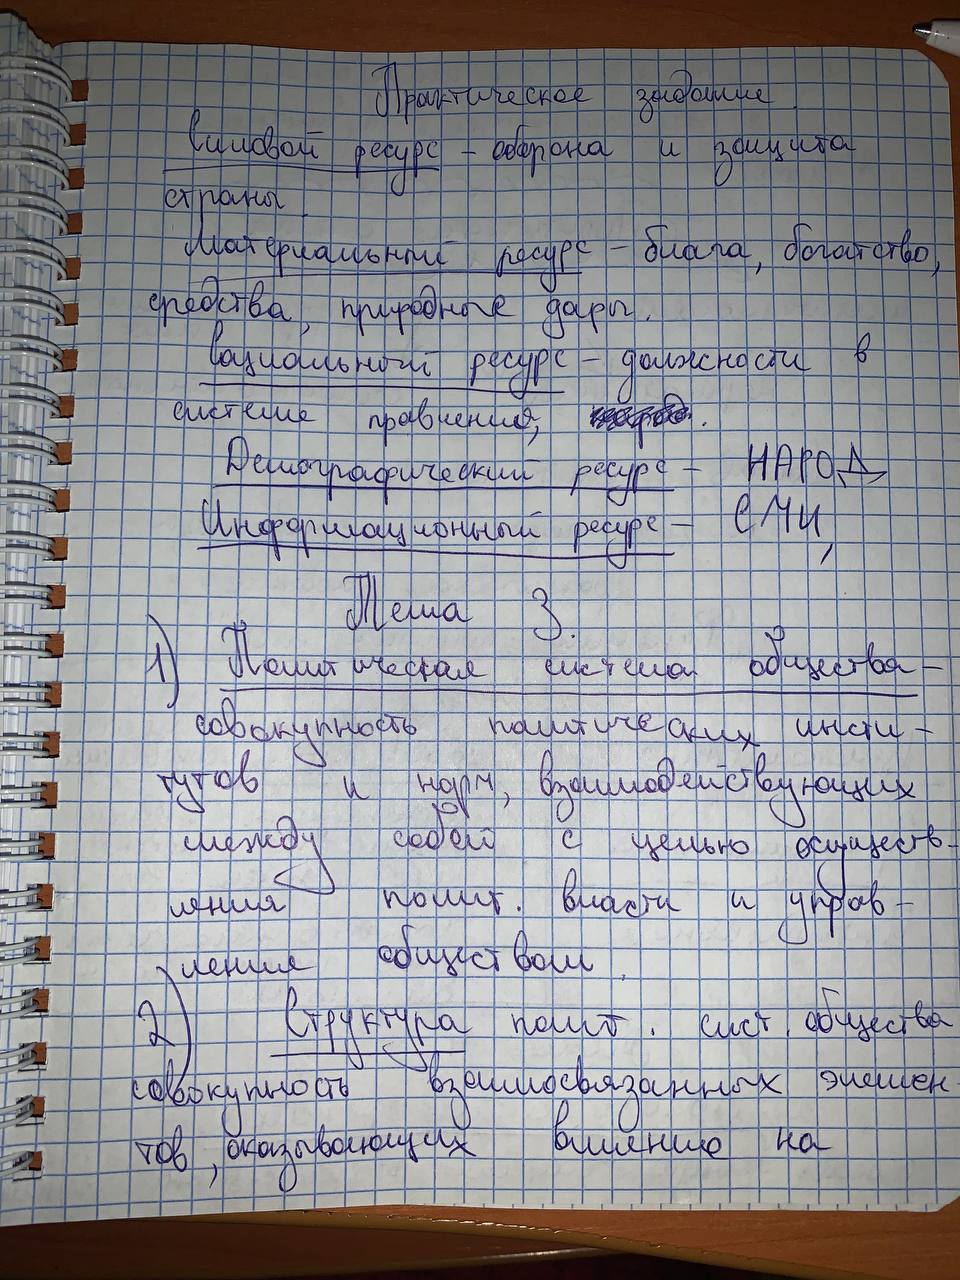 Практическое задание
Силовой ресурс - оборона и защита
страны.
Материальный ресурс - блага, богатство,
средства, природные дары.
Социальный ресурс - должности в
системе правления,
Демографический ресурс - НАРОД
Информационный ресурс - СМИ,
Тема 3.
1) Политическая система общества -
совокупность политических инсти-
тутов и норм, взаимодействующих
между собой с целью осуществ-
ления полит. власти и управ-
ления обществом.
2) Структура полит. сист. общества
совокупность взаимосвязанных элемен-
тов, оказывающих влияние на